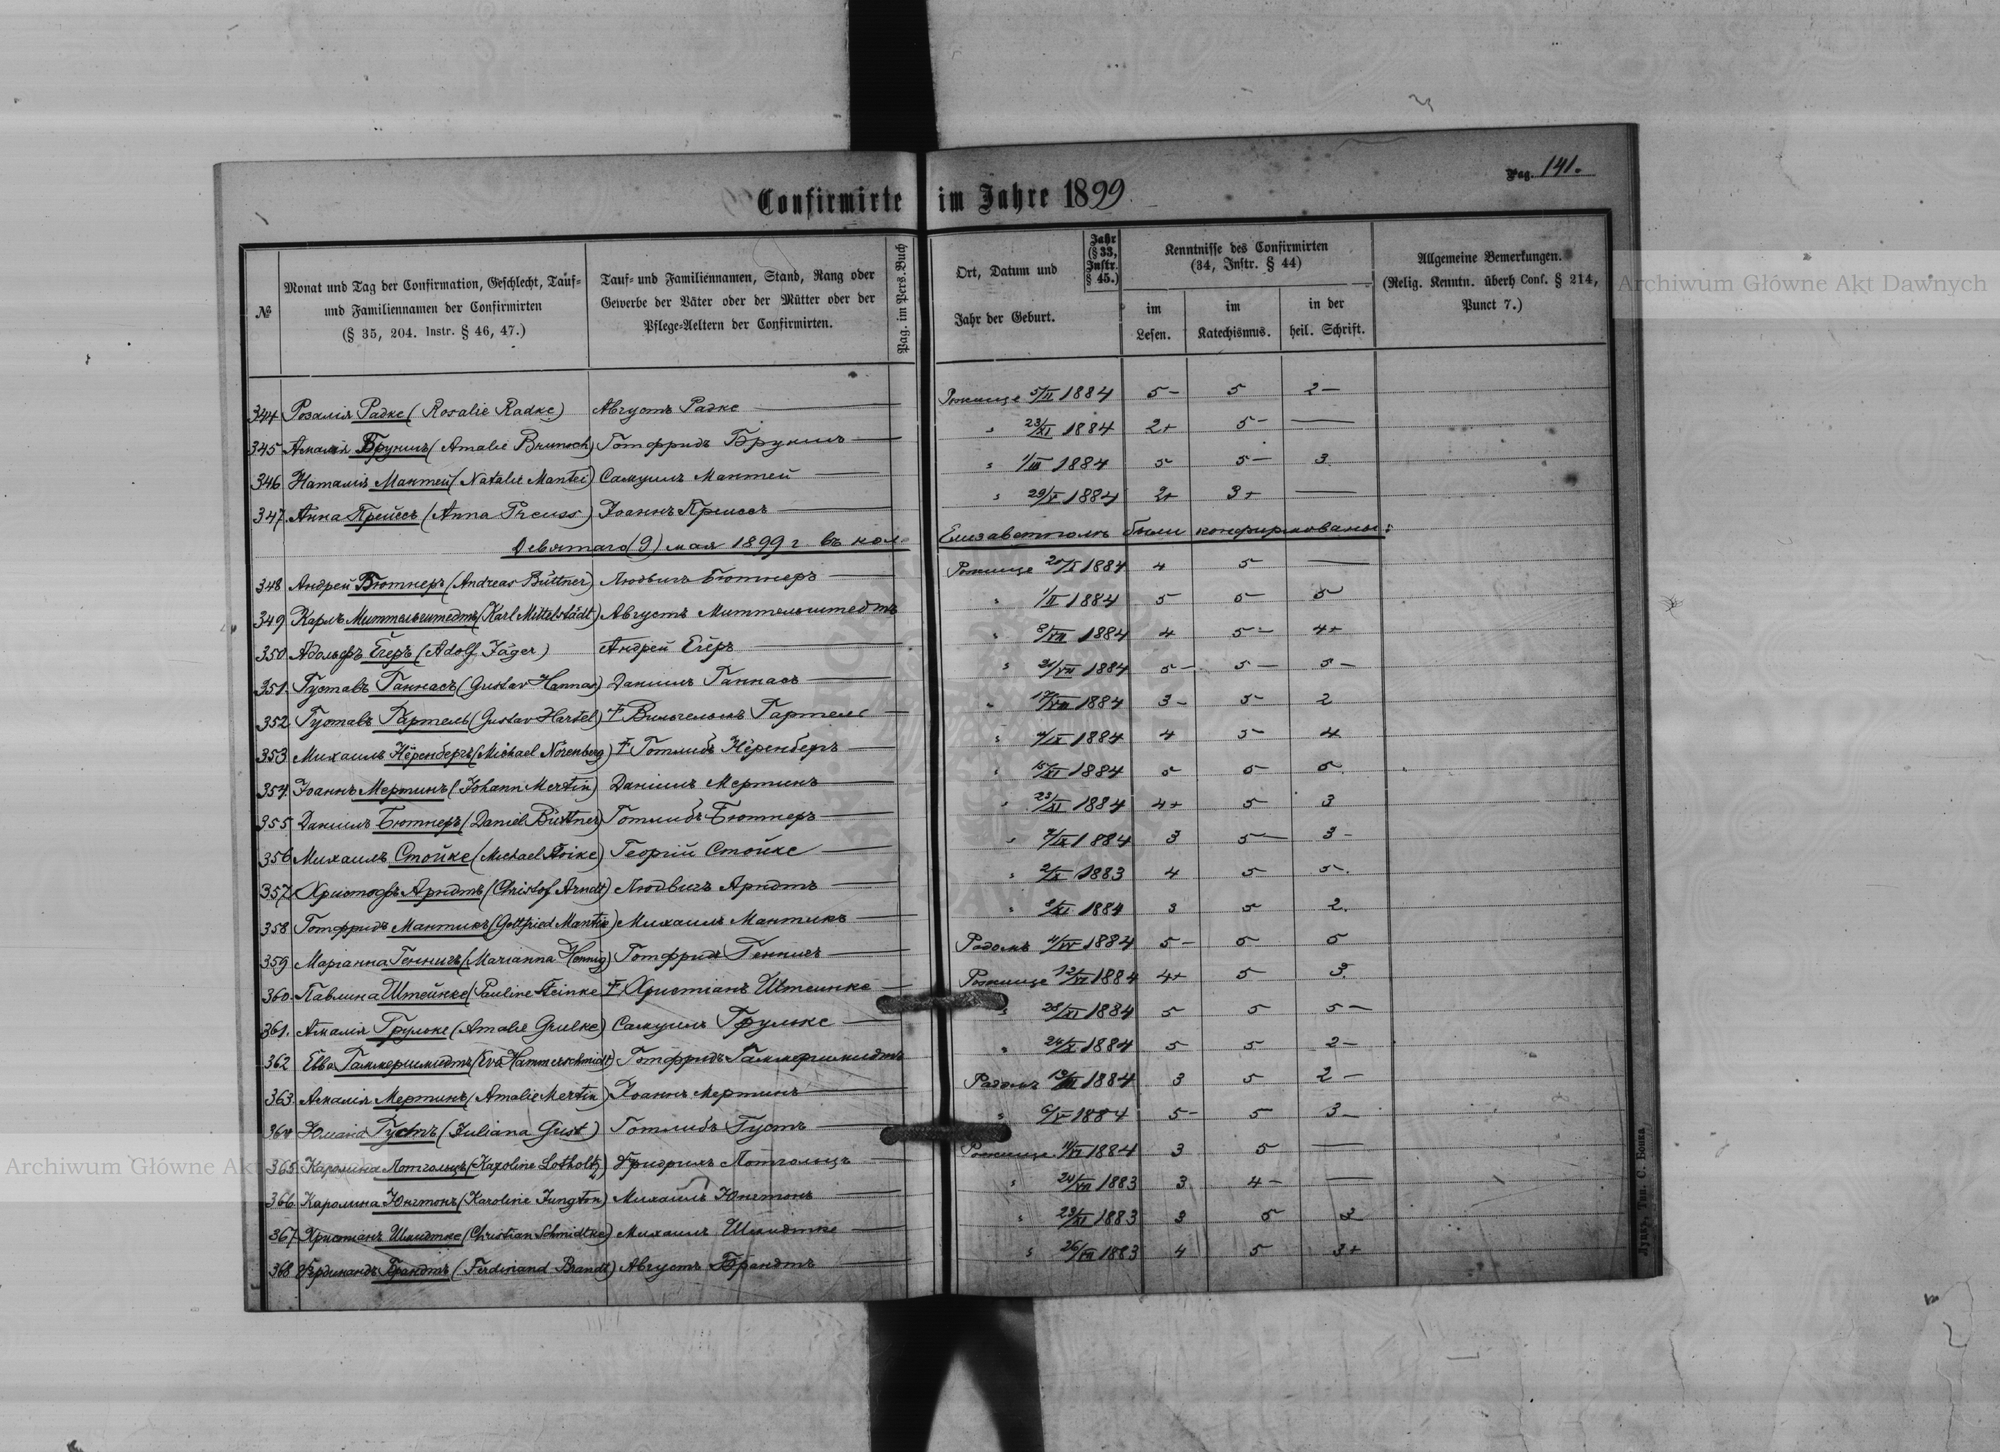 Pag. 141.
Confirmirte im Jahre 1899
№
Monat und Tag der Confirmation, Geschlecht, Tauf-
und Familiennamen der Confirmirten
(§ 35, 204. Instr. § 46, 47.)
Tauf- und Familiennamen, Stand, Rang oder
Gewerbe der Väter oder der Mütter oder der
Pflege-Aeltern der Confirmirten.
Pag. im Pers. Buch
Ort, Datum und
Jahr der Geburt.
Jahr
(§ 33,
Instr.
§ 45.)
Kenntnisse des Confirmirten
(34, Instr. § 44)
im
Lesen.
im
Katechismus.
in der
heil. Schrift.
Allgemeine Bemerkungen.
(Relig. Kenntn. überh Conf. § 214,
Punct 7.)
344 Розалія Радке (Rosalie Radke) Августъ Радке — Рожище 5/II 1884 5- 5 2-
345 Амалія Бруншъ (Amalie Brunsch) Готфридъ Бруншъ — " 23/XI 1884 2+ 5- —
346 Наталія Мантей (Natalie Mantei) Самуилъ Мантей — " 1/III 1884 5 5- 3
347. Анна Прейссъ (Anna Preuss) Іоаннъ Прейссъ — " 29/V 1884 2+ 3+ —
Девятаго (9) мая 1899 г. въ кол. Елизаветполь были конфирмованы:
348 Андрей Бютнеръ (Andreas Büttner) Людвигъ Бютнеръ — Рожище 20/X 1884 4 5 —
349 Карлъ Миттельштедтъ (Karl Mittelstädt) Августъ Миттельштедтъ " 1/II 1884 5 5 5
350 Адольфъ Егеръ (Adolf Jäger) Андрей Егеръ — " 8/VII 1884 4 5- 4+
351. Густавъ Ганнасъ (Gustav Hannas) Даніилъ Ганнасъ — " 21/VII 1884 5- 5- 5-
352 Густавъ Гартель (Gustav Hartel) † Вильгельмъ Гартель — " 17/VIII 1884 3- 5- 2
353 Михаилъ Нёренбергъ (Michael Nörenberg) † Готлибъ Нёренбергъ — " 4/IX 1884 4 5- 4
354 Іоаннъ Мертинъ (Johann Mertin) Даніилъ Мертинъ — " 15/XI 1884 5 5 5.
355 Даніилъ Бютнеръ (Daniel Büttner) Готлибъ Бютнеръ — " 23/XI 1884 4+ 5 3
356 Михаилъ Стойке (Michael Stoike) Георгій Стойке — " 7/IX 1884 3 5- 3-
357. Христофъ Арндтъ (Christof Arndt) Людвигъ Арндтъ — " 2/X 1883 4 5 5.
358. Готфридъ Мантикъ (Gottfried Mantik) Михаилъ Мантикъ — " 2/XI 1884 3 5 2.
359 Маріанна Геннигъ (Marianna Hennig) Готфридъ Геннигъ — Радомъ 4/IV 1884 5- 5 5
360. Павлина Штейнке (Pauline Steinke) † Христіанъ Штейнке — Рожище 12/VI 1884 4+ 5 3.
361. Амалія Грульке (Amalie Grulke) Самуилъ Грульке — " 28/XI 1884 5 5 5-
362 Ева Гаммершмидтъ (Eva Hammerschmidt) Готфридъ Гаммершмидтъ " 24/X 1884 5 5 2-
363. Амалія Мертинъ (Amalie Mertin) Іоаннъ Мертинъ — Радомъ 19/III 1884 3 5 2-
364 Юліана Густъ (Juliana Gust) Готлибъ Густъ — " 6/V 1884 5- 5 3-
365. Каролина Лотгольцъ (Karoline Lotholtz) Фридрихъ Лотгольцъ — Рожище 14/XI 1884 3 5 —
366 Каролина Юнгтонъ (Karoline Jungton) Михаилъ Юнгтонъ — " 24/VII 1883 3 4- —
367 Христіанъ Шмидтке (Christian Schmidtke) Михаилъ Шмидтке " 23/XI 1883 3 5 3
368 Фердинандъ Брандтъ (Ferdinand Brandt) Августъ Брандтъ — " 26/VII 1883 4 5 3+
Луцкъ, Тип. С. Бонка
Archiwum Główne Akt Dawnych
Archiwum Główne Akt